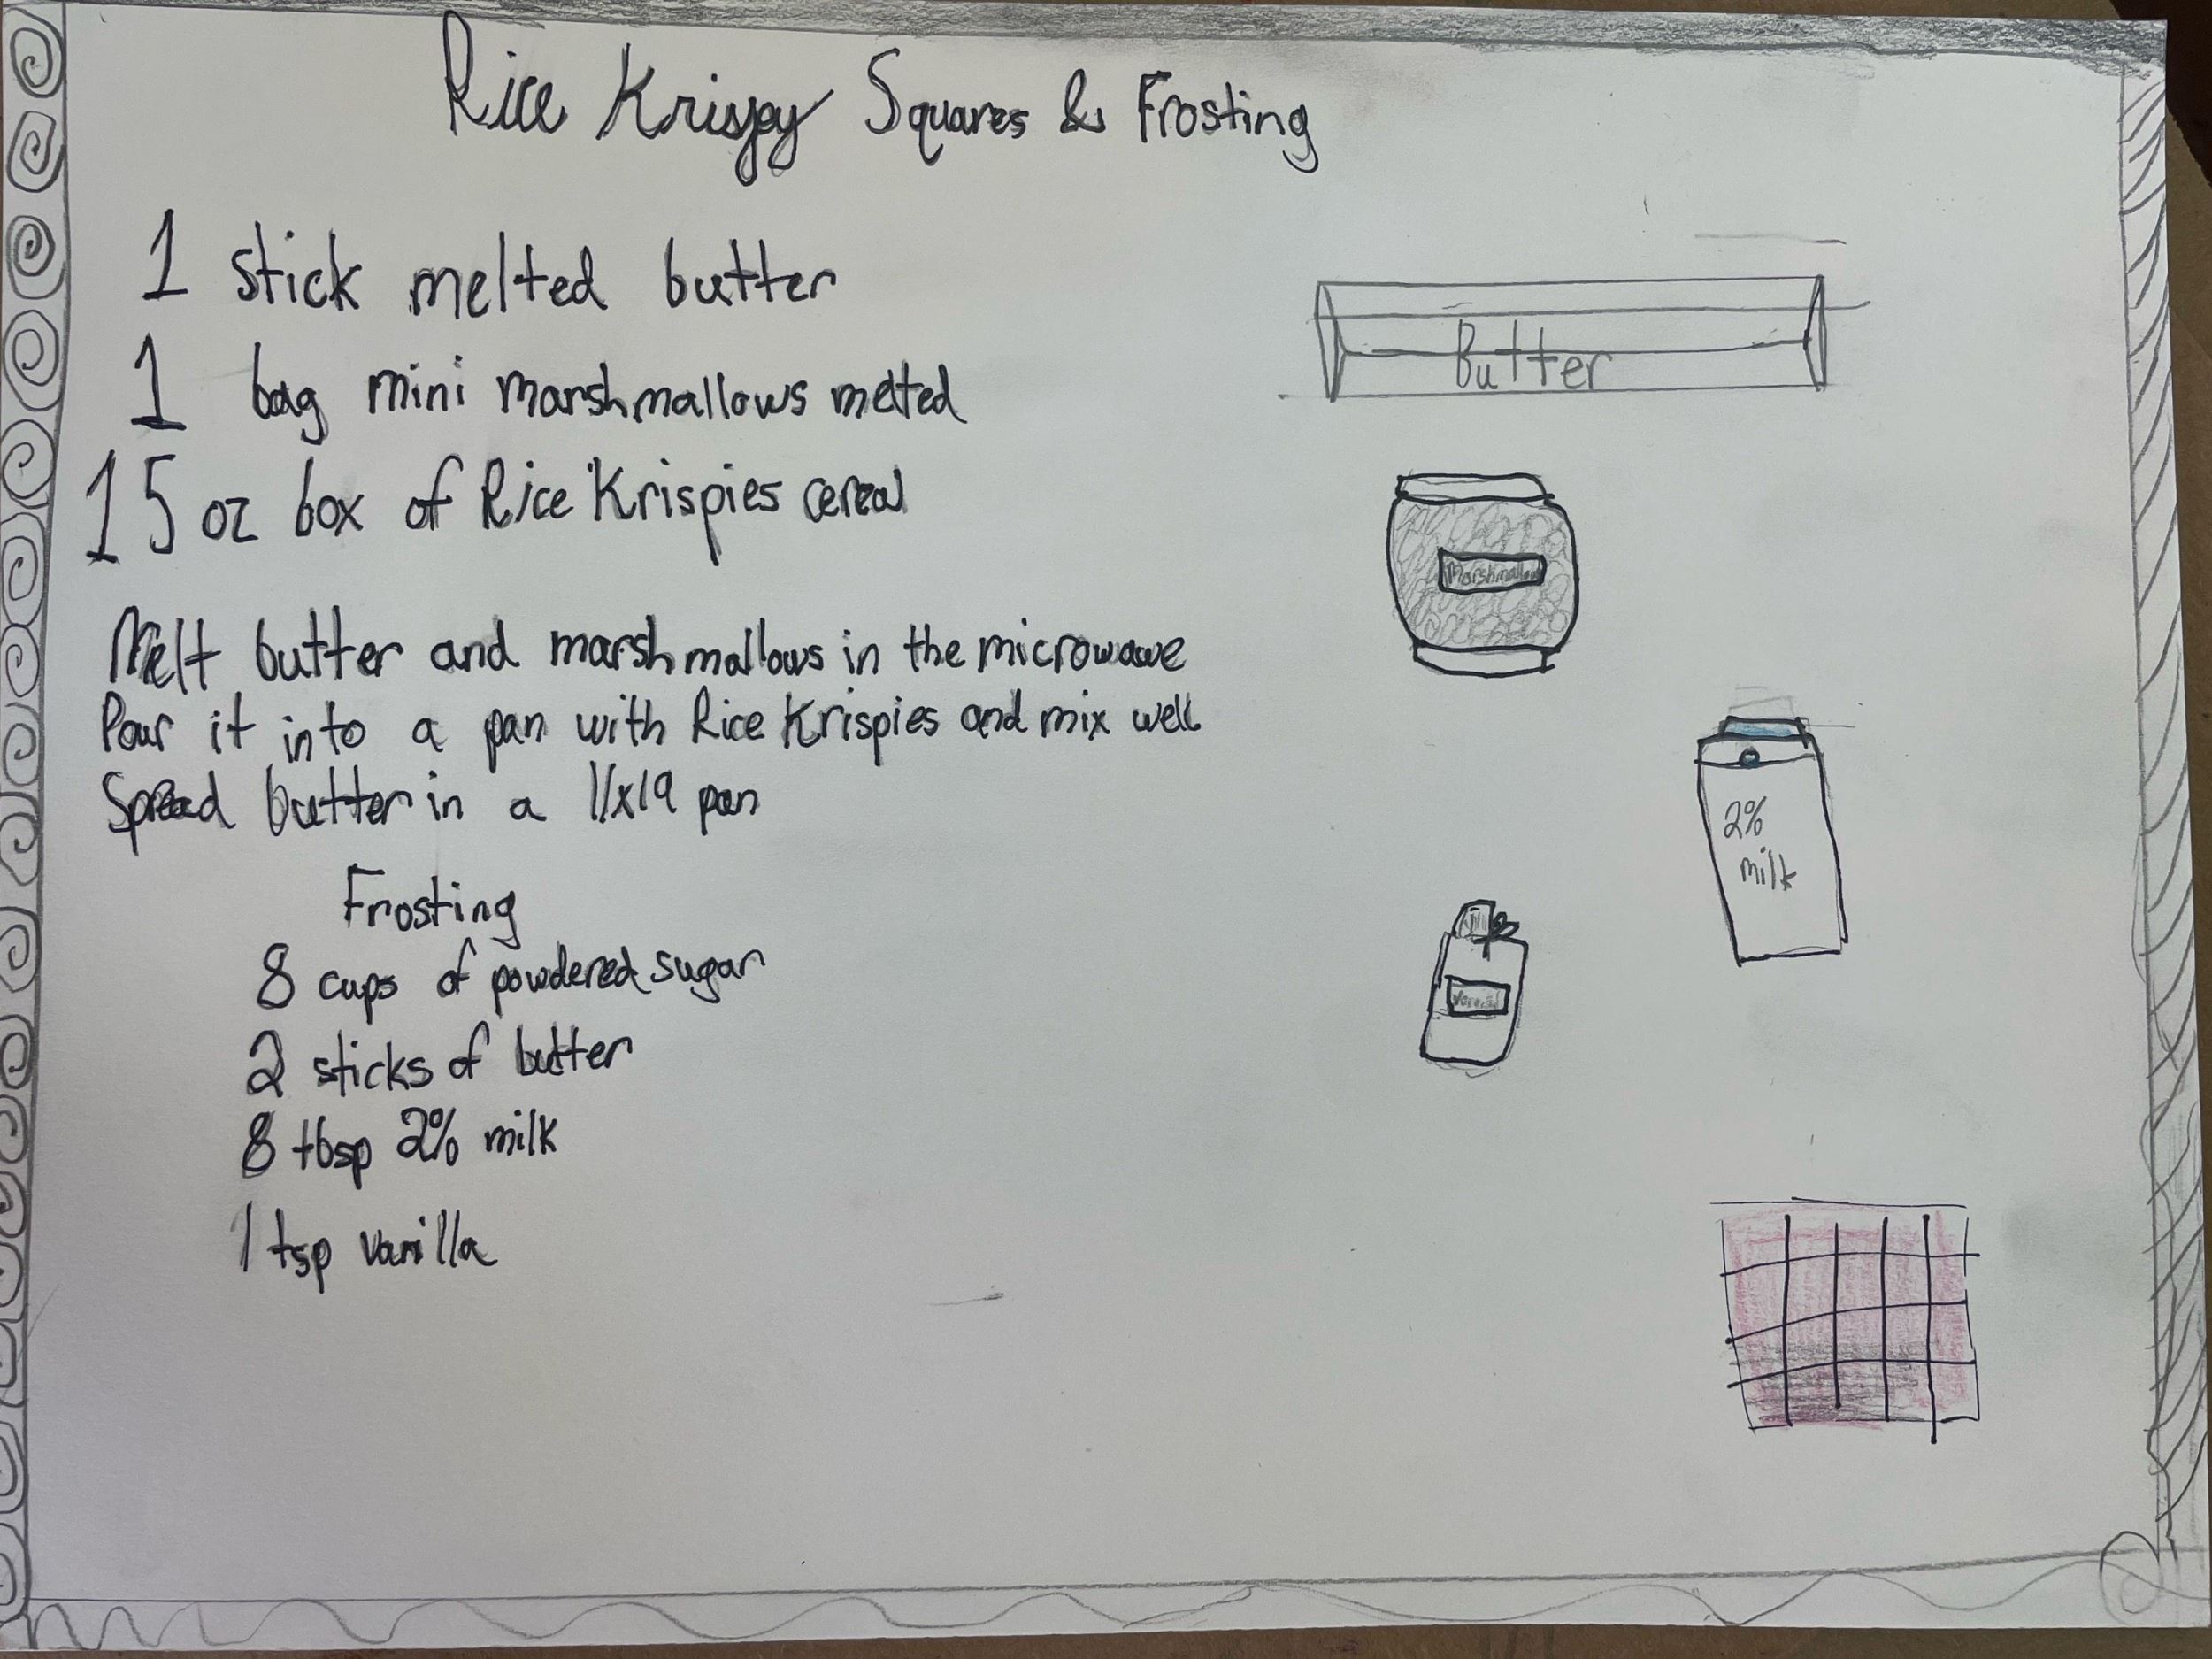 Rice Krispy Squares & Frosting
1 stick melted butter
1 bag mini marshmallows melted
15 oz box of Rice Krispies cereal
Melt butter and marshmallows in the microwave
Pour it into a pan with Rice Krispies and mix well
Spread butter in a 11x19 pan
Frosting
8 cups of powdered sugar
2 sticks of butter
8 tbsp 2% milk
1 tsp vanilla
Butter
Marshmallow
2%
milk